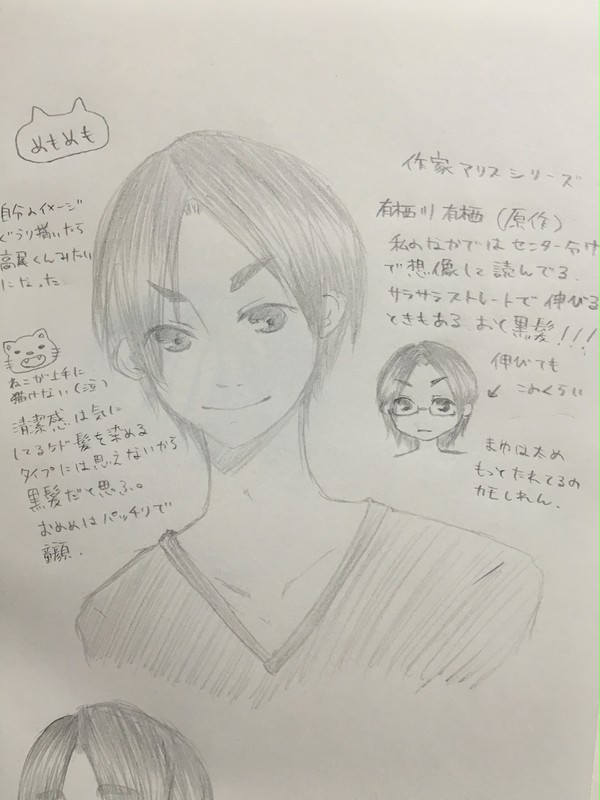 めもめも
自分のイメージ
ぐうり描いたら
高尾くんみたい
になった
ねこが上手に
描けない(泣)
清潔感は気に
してるケド髪を染める
タイプには思えないから
黒髪だと思ふ。
おめめはパッチリで
童顔.
作家アリスシリーズ
有栖川有栖(原作)
私のなかではセンター分け
で想像して読んでる.
サラサラストレートで伸びる
ときもある おく黒髪!!!
伸びても
このくらい
まゆは太め
もっとたれてるの
カモしれん.